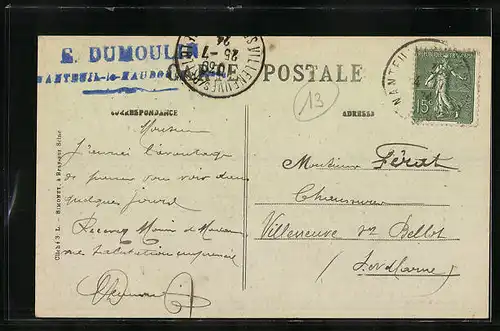 E. DUMOULIN
NANTEUIL-le-HAUDOUIN
CARTE POSTALE
VILLENEUVE
10 50
25 -7
24
NANTEUIL
15c
13
CORRESPONDANCE
ADRESSE
Monsieur
J'aurai l'avantage
de passer vous voir dans
quelques jours
Recevez Monsieur
mes salutations empressées
Dumoulin
Monsieur Férat
Chaussures
Villeneuve s/ Bellot
(Seine & Marne)
Cliché J. L. - SIMONET, à